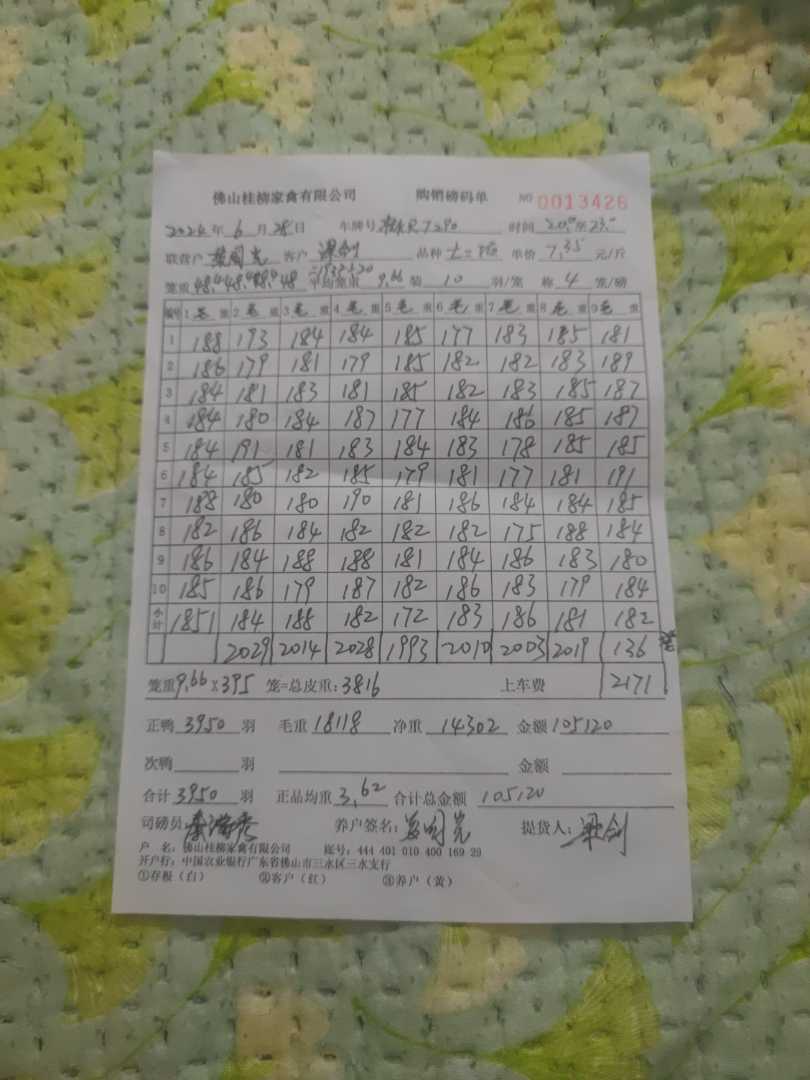 佛山桂柳家禽有限公司 购销磅码单 NO 0013426
2024年6月28日 车牌号 7290 时间
联营户 客户 梁剑 品种 单价 7.35 元/斤
笼重 48.4 48.4 48.4 48 平均笼重 9.66 装 10 羽/笼 称 4 笼/磅
编号 1 毛 重 2 毛 重 3 毛 重 4 毛 重 5 毛 重 6 毛 重 7 毛 重 8 毛 重 9 毛 重
1 188 193 184 184 185 177 183 185 181
2 186 179 181 179 185 182 182 183 189
3 184 181 183 181 185 182 183 185 187
4 184 180 184 187 177 184 186 185 187
5 184 191 181 183 184 183 178 185 185
6 184 185 182 185 179 181 177 181 191
7 188 180 180 190 181 186 184 184 185
8 182 186 184 182 182 182 175 188 184
9 186 184 188 188 181 184 186 183 180
10 185 186 179 187 182 186 183 179 184
小计 1851 184 188 182 172 183 186 181 182
2029 2014 2028 1993 2010 2003 2019 136
笼重 9.66 × 395 笼=总皮重：3816 上车费 2171
正鸭 3950 羽 毛重 18118 净重 14302 金额 105120
次鸭 羽 金额
合计 3950 羽 正品均重 3.62 合计总金额 105120
司磅员： 养户签名： 提货人：梁剑
户 名：佛山桂柳家禽有限公司 账号：444 401 010 400 169 29
开户行：中国农业银行广东省佛山市三水区三水支行
①存根（白） ②客户（红） ③养户（黄）